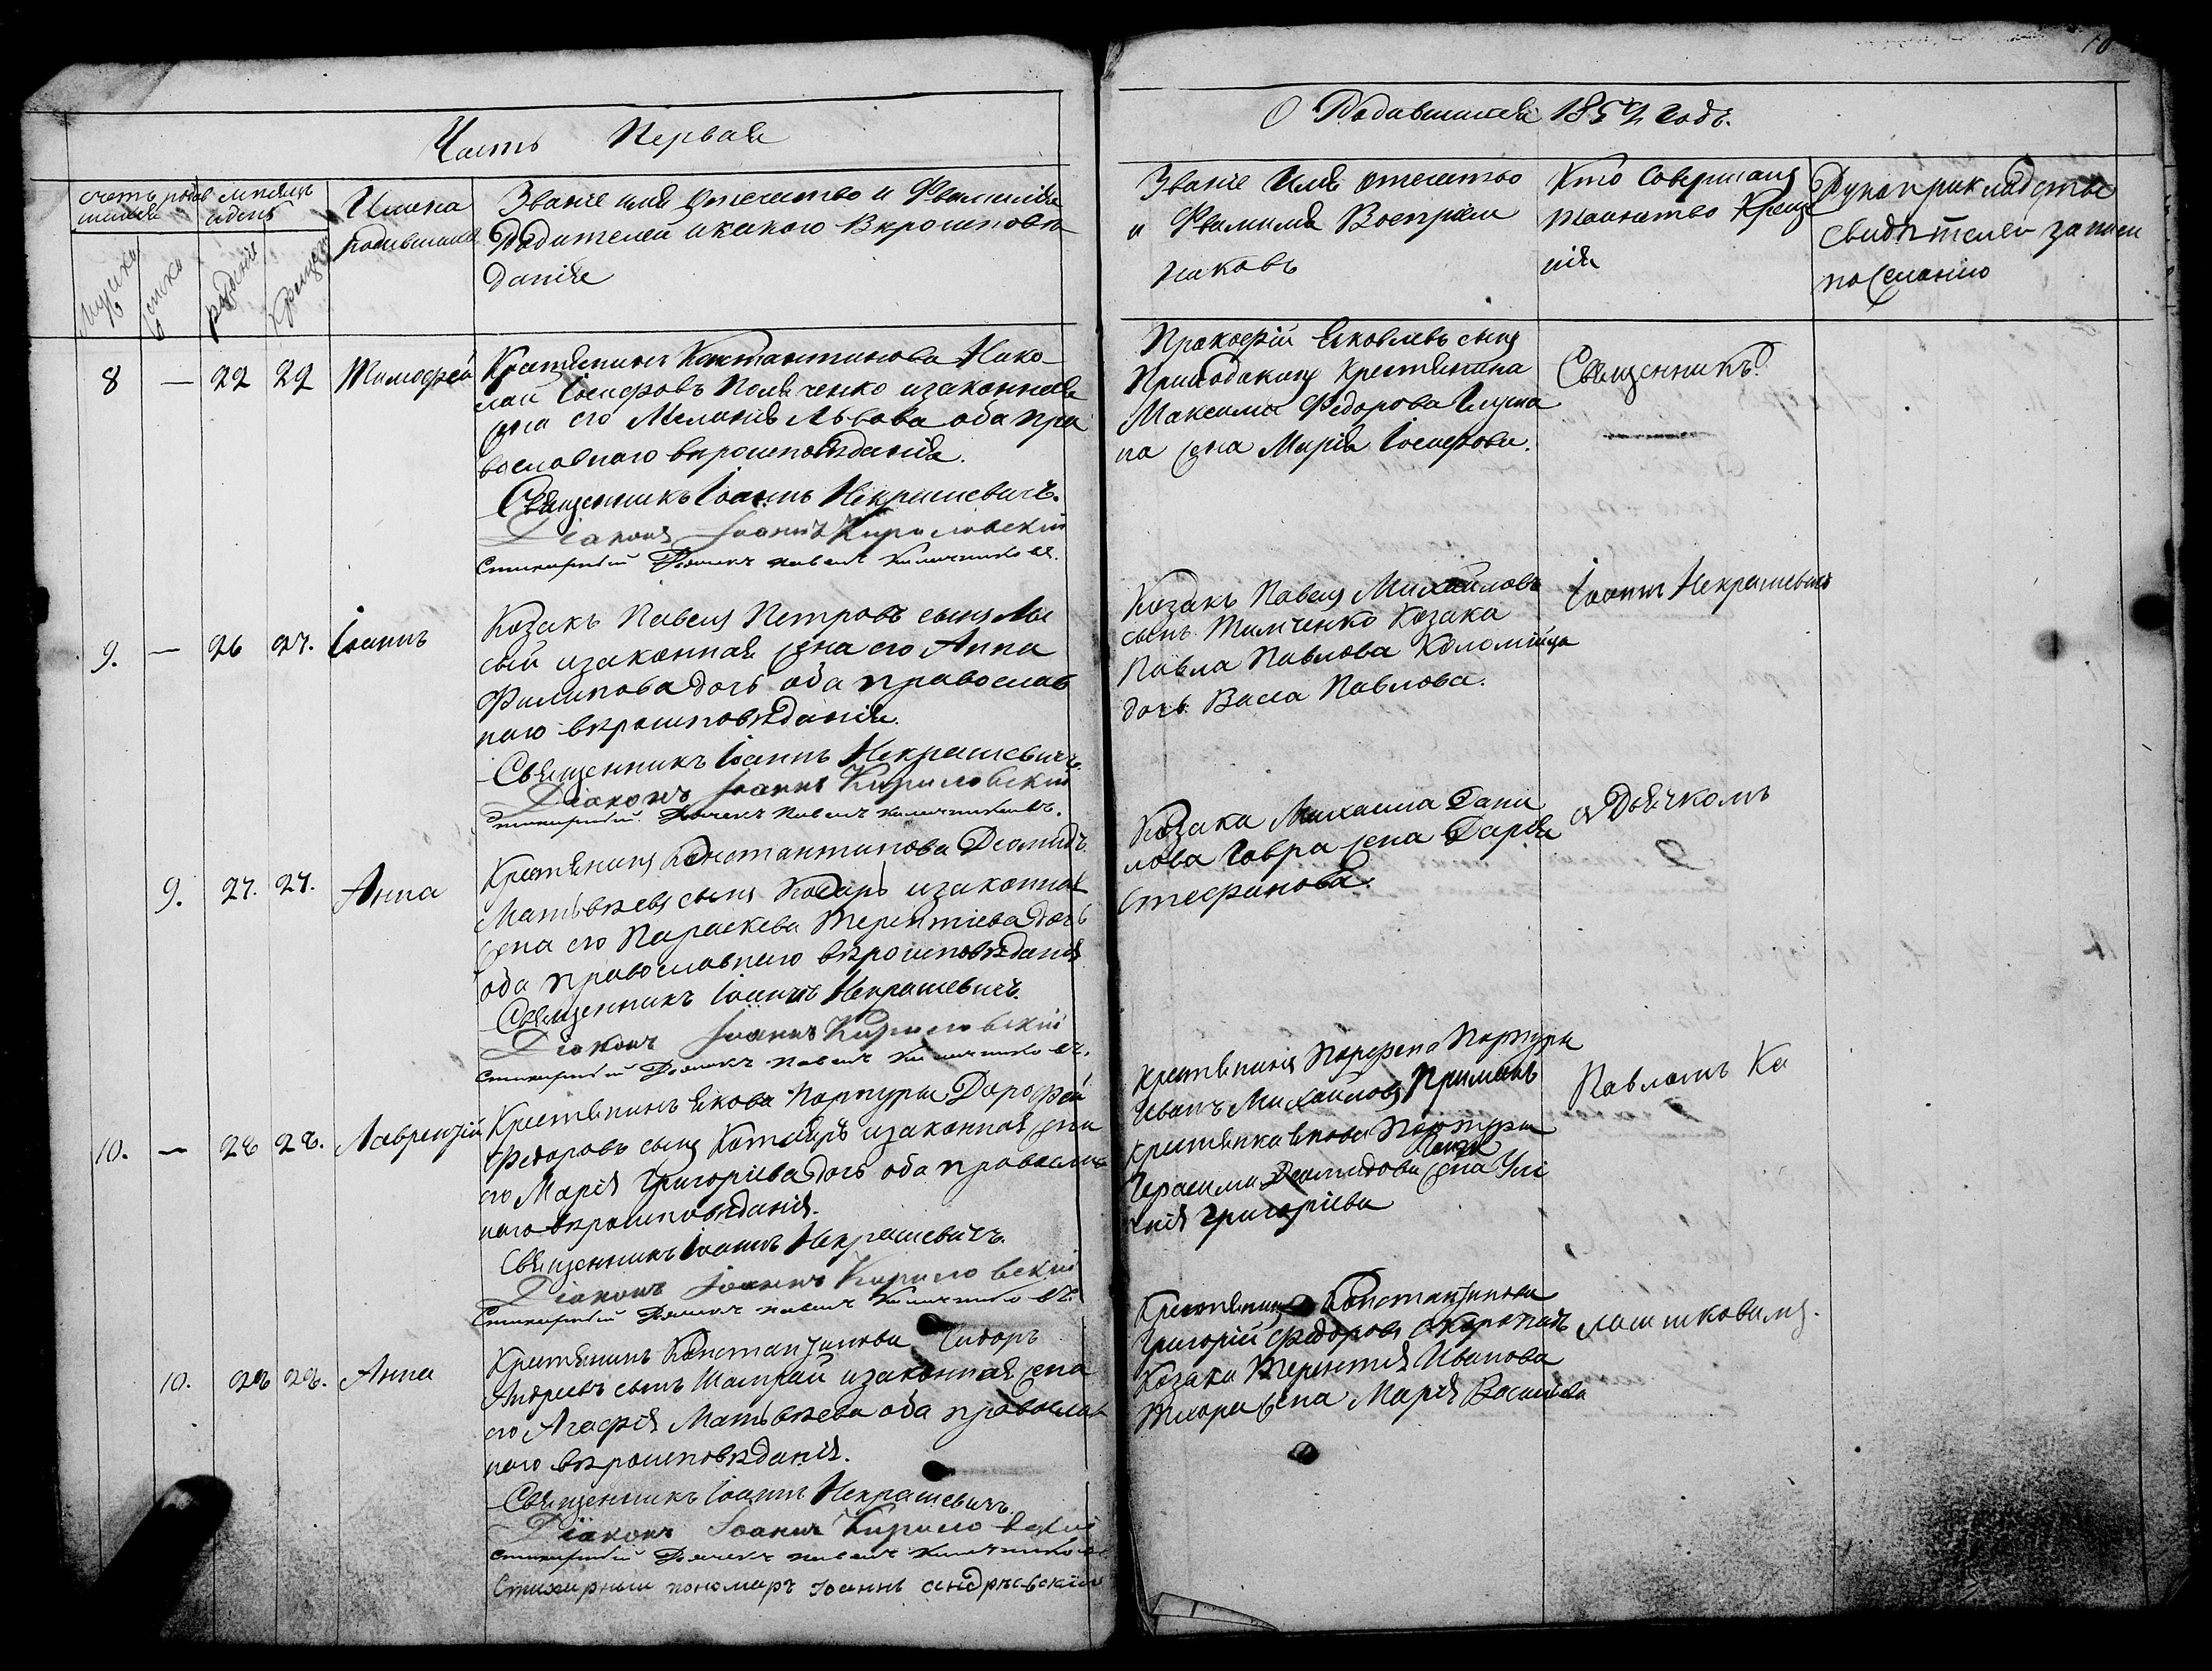 10
Часть Первая
О Родившихся 1852 годъ.
счетъ родив
шихся
месяцъ
и день
Мужска
Женска
рожденія
Крещен
Имена
родившихся
Званіе имя Отечество и Фамилія
Родителей и какого Вероисповѣ
данія
Званіе Имя отечество
и Фамилія Воспріем
никовъ
Кто Совершалъ
таинство Креще
нія
Рукоприкладство
свидѣтелей записи
по желанію
8 — 22 22 Тимофей
Крестянинъ Константинова Нико
лай Іосифовъ Поляченко и законная
жена его Меланія Львова оба пра
вославнаго вероисповѣданія.
Священникъ Іоаннъ Некрашевичъ.
Діаконъ Іоаннъ Кириловскій
Стихарный Дьячекъ Павелъ Калашниковъ.
Прокофій Яковлевъ сынъ
Приходкинъ Крестянина
Максима Федорова
на жена Марія Іосифова.
Священникъ
9. — 26 27. Іоаннъ
Козакъ Павелъ Петровъ сынъ Лы
сый и законная жена его Анна
Филипова дочь оба православ
наго вероисповѣданія.
Священникъ Іоаннъ Некрашевичъ
Діаконъ Іоаннъ Кириловскій
Стихарный Дьячекъ Павелъ Калашниковъ.
Козакъ Павелъ Михайловъ
сынъ Тимченко Козака
Павла Павлова Коломійца
дочь Васса Павлова.
Іоаннъ Некрашевичъ
9. 27. 27. Анна
Крестянинъ Константинова Діомидъ
Матьвѣевъ сынъ и законная
жена его Параскева Терентіева дочь
оба православнаго вероисповѣданія
Священникъ Іоаннъ Некрашевичъ.
Діаконъ Іоаннъ Кириловскій
Стихарный Дьячекъ Павелъ Калашниковъ.
Козака Михаила Дани
лова Гавра жена Дарія
Стефанова.
съ Дьячкомъ
10. — 28 28. Лаврентій
Крестянинъ Якова Портуры Дорофей
Федоровъ сынъ Котляръ и законная жена
его Марія Григоріева дочь оба православ
наго вероисповѣданія.
Священникъ Іоаннъ Некрашевичъ.
Діаконъ Іоаннъ Кириловскій
Стихарный Дьячекъ Павелъ Калашниковъ.
Крестянинъ Парфена Портуры
Иванъ Михайловъ
крестянка Якова Портуры
Герасима Діомидова жена Улі
янія Григоріева
Павломъ Ка
10. 28 28. Анна
Крестянинъ Константинова Сидоръ
Андреевъ сынъ Шаптай и законная жена
его Агафія Матьвѣева оба православ
наго вероисповѣданія.
Священникъ Іоаннъ Некрашевичъ.
Діаконъ Іоаннъ Кириловскій
Стихарный Дьячекъ Павелъ Калашниковъ
Стихарный пономарь Іоаннъ Андріевскій
Крестянинъ Константинова
Григорій Федоровъ Скоропадъ
Козака Терентія Иванова
Тхора жена Марія Васильева
лашниковымъ.